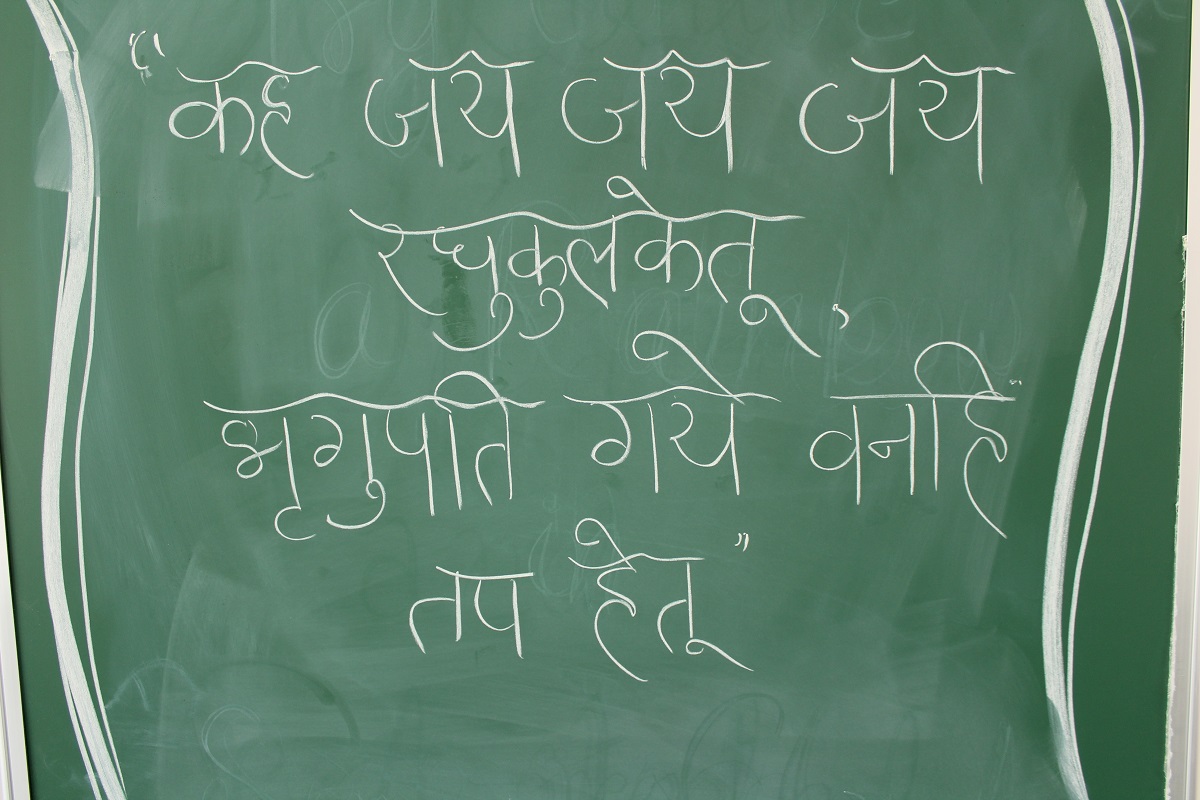 "कह जय जय जय
रघुकुलकेतू,
भृगुपति गये वनहि
तप हेतू"